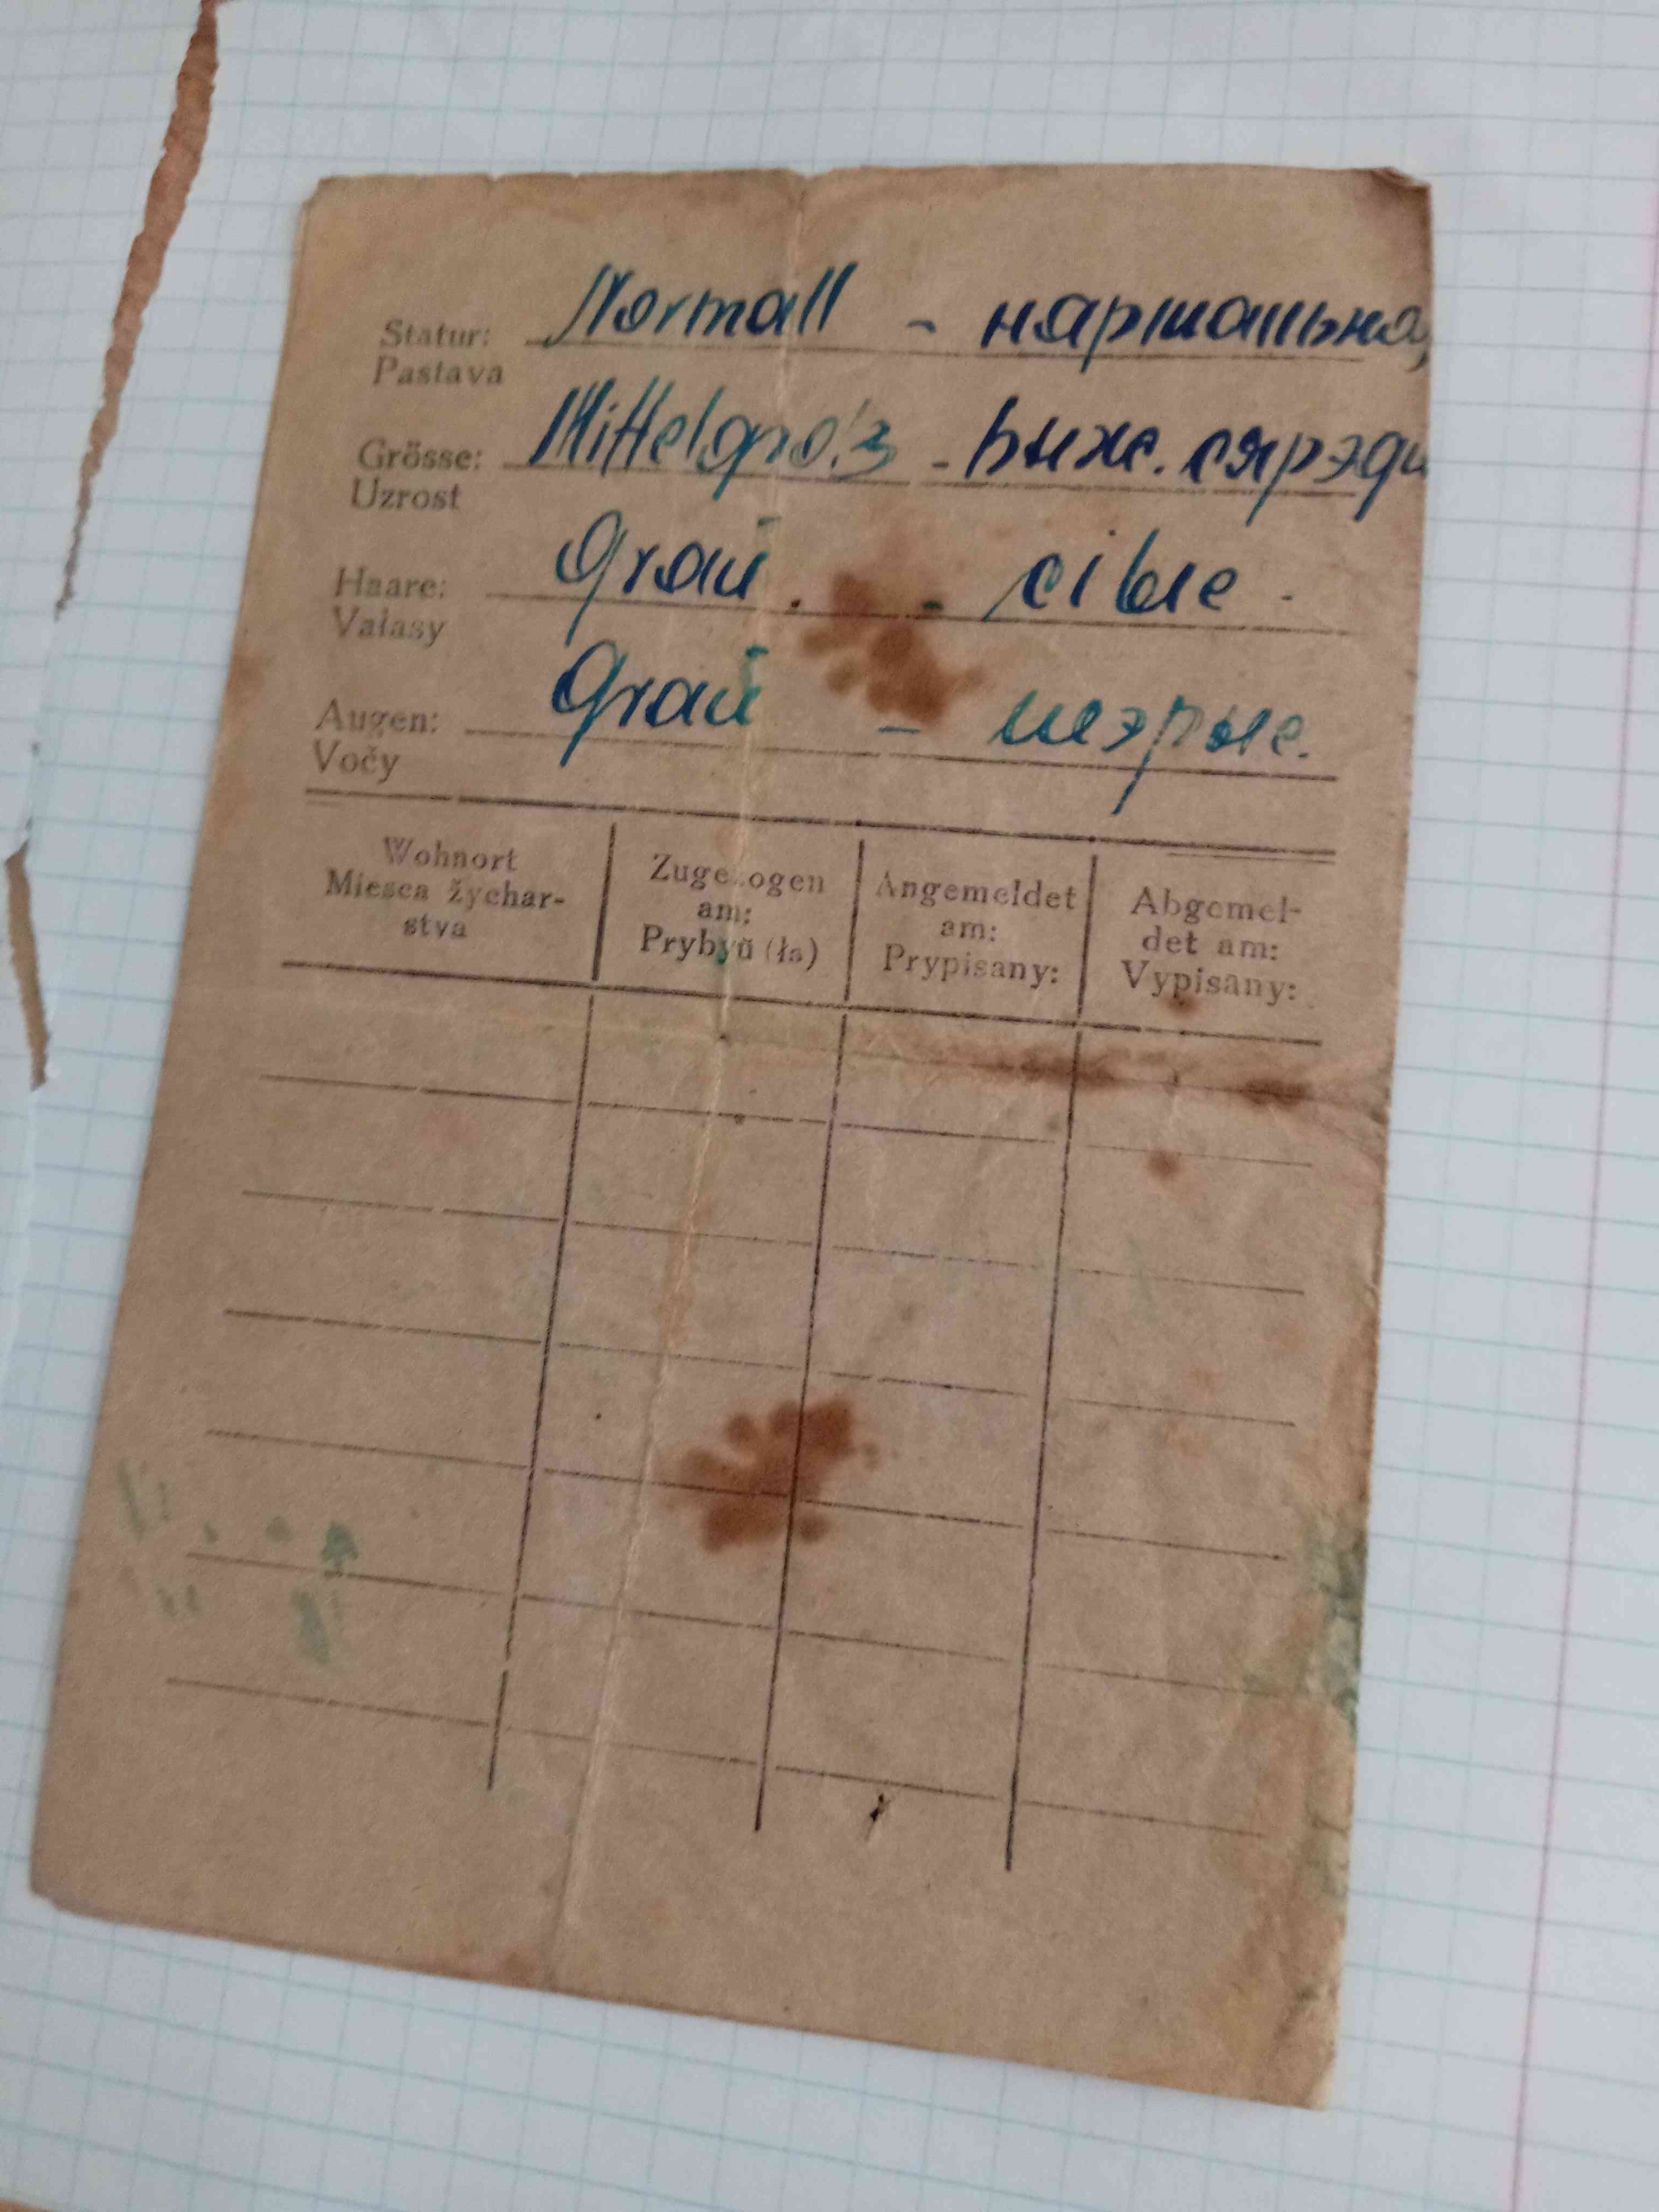 Statur: Normall - нармальна,
Pastava
Grösse: Mittelgro'z - Выж. сярэдн
Uzrost
Haare: Graŭ. - сівые.
Vałasy
Augen: Graŭ - шэрые.
Vočy
Wohnort
Miesca žychar-
stva
Zugezogen
am:
Prybyŭ (ła)
Angemeldet
am:
Prypisany:
Abgemel-
det am:
Vypisany: